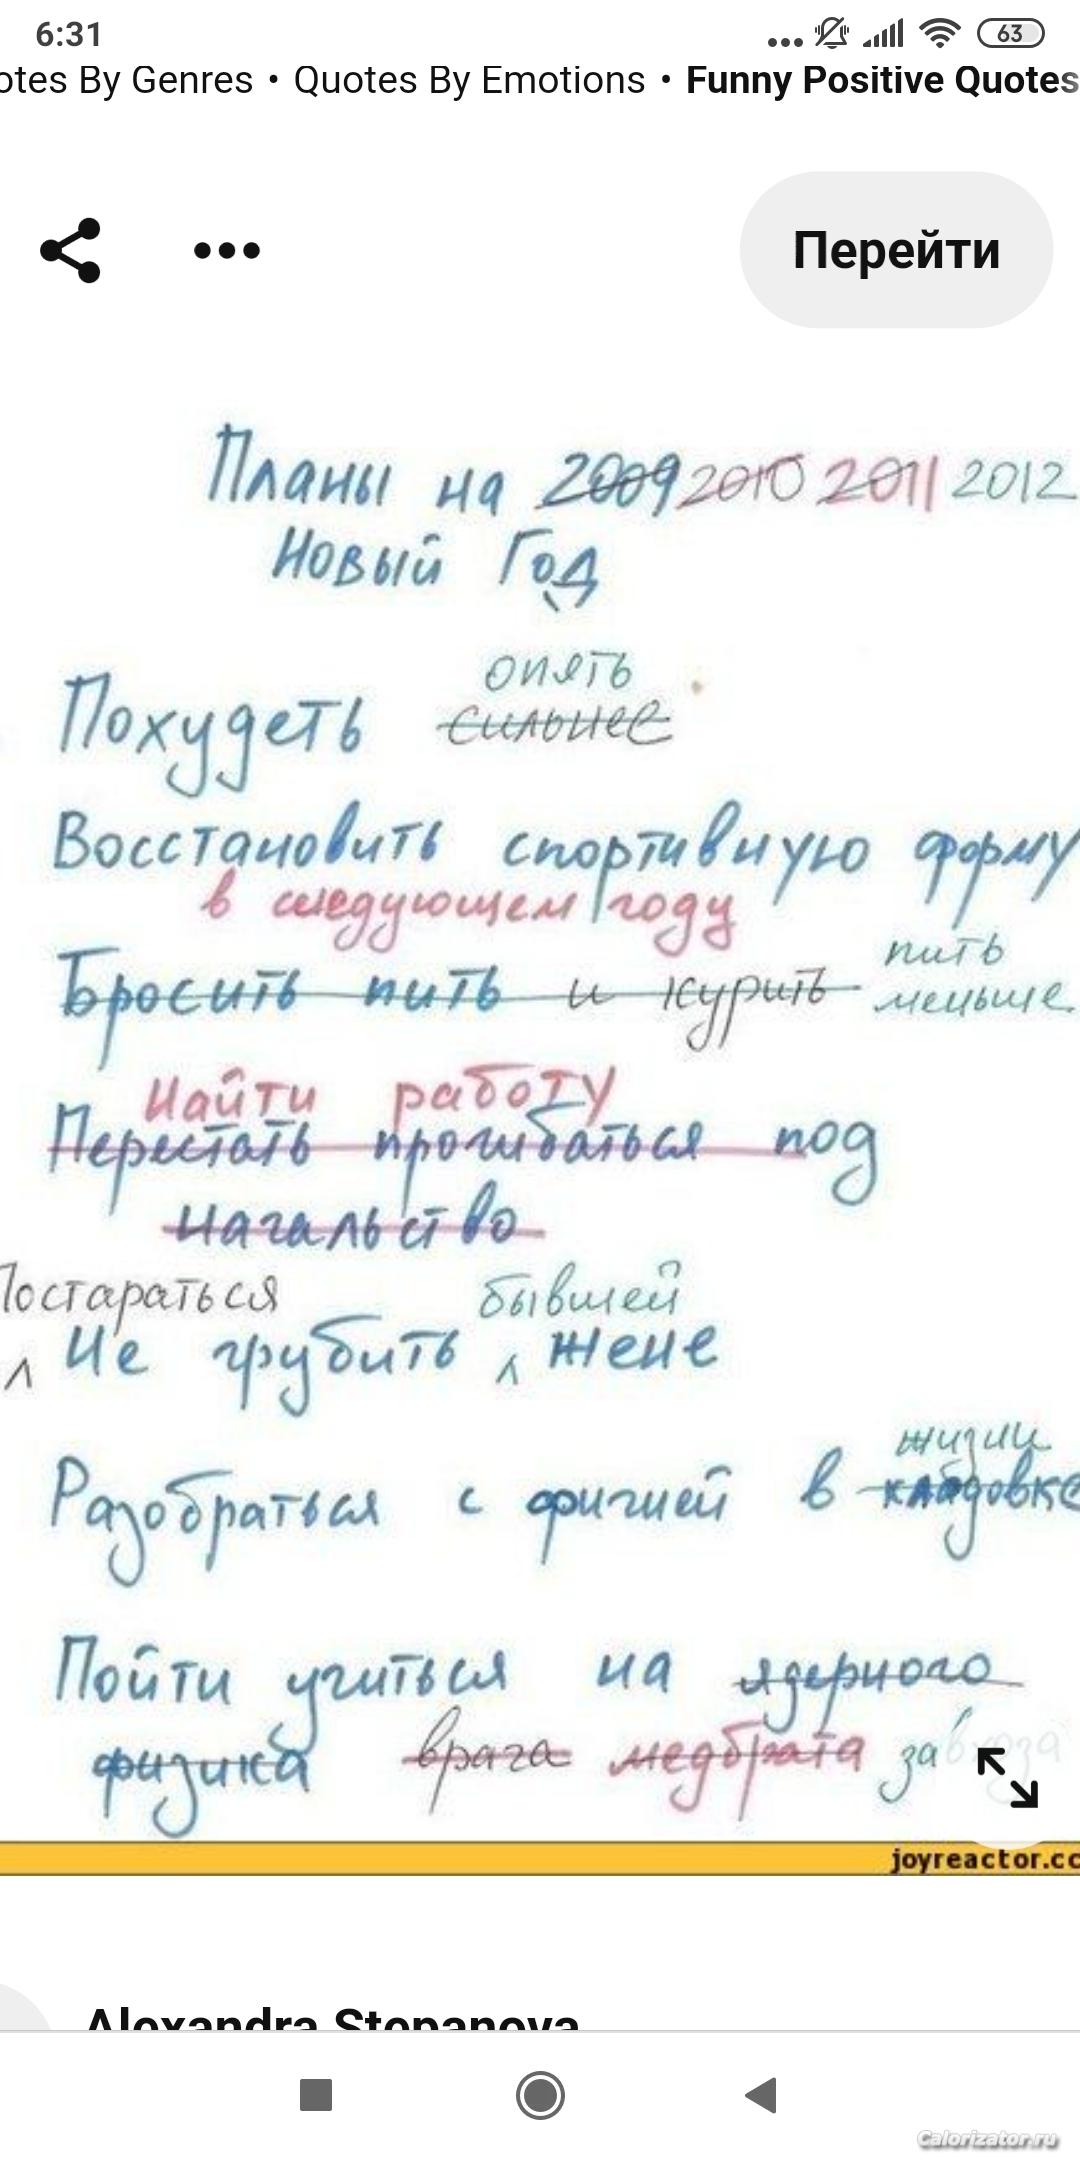 6:31
63
otes By Genres • Quotes By Emotions • Funny Positive Quotes
Перейти
Планы на 2009 2010 2011 2012
Новый Год
опять
Похудеть сильнее
Восстановить спортивную форму
в следующем году
пить
Бросить пить и курить меньше
Найти работу
Перестать прогибаться под
начальство
Постараться бывшей
Не грубить жене
жизни
Разобраться с фигнёй в кладовке
Пойти учиться на ядерного
физика врача медбрата завхоза
joyreactor.cc
Alexandra Stepanova
Calorizator.ru